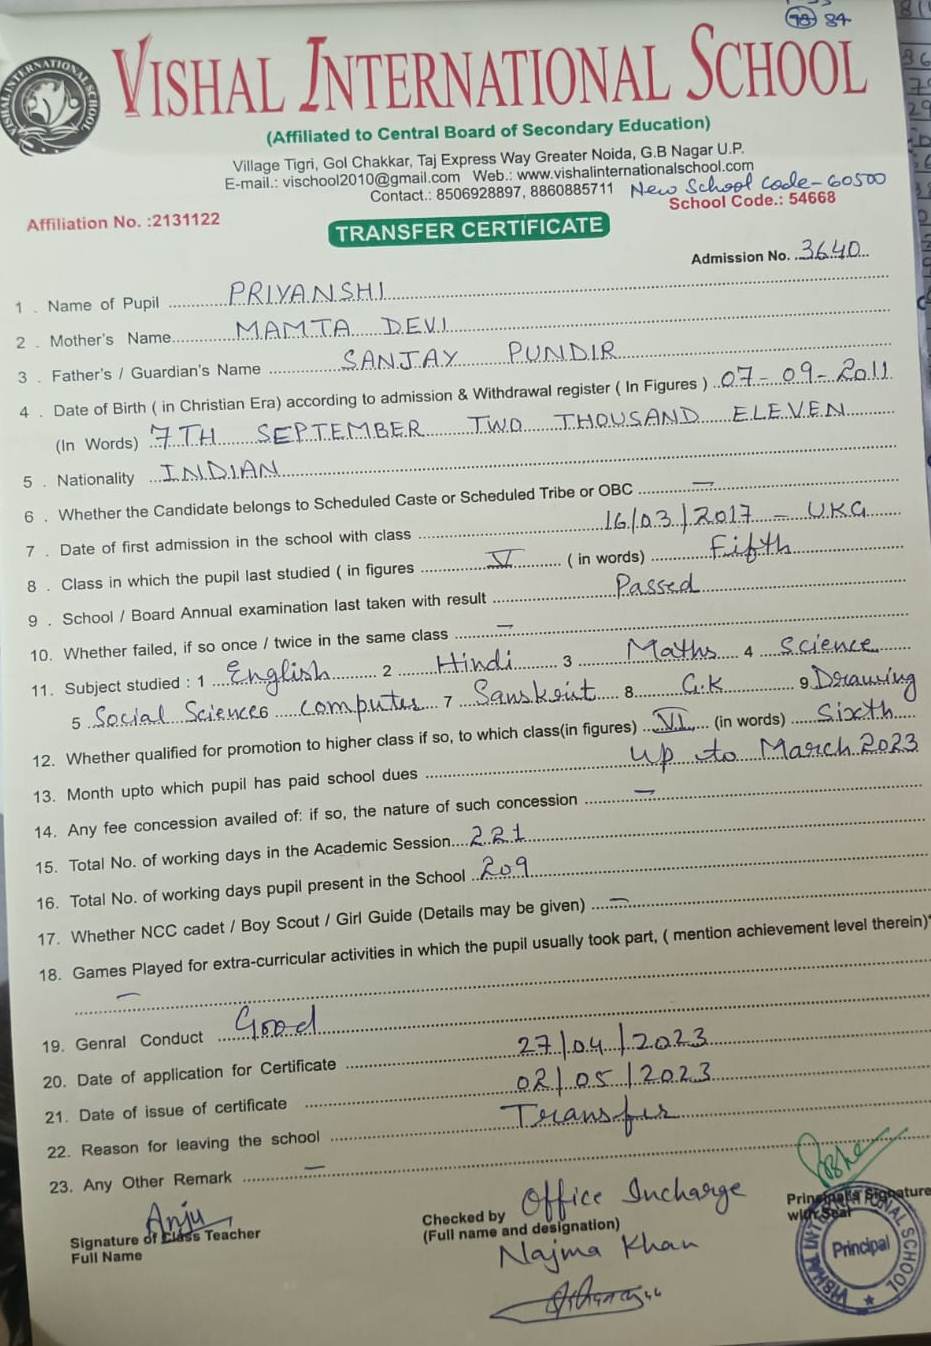 78 84
VISHAL INTERNATIONAL SCHOOL
(Affiliated to Central Board of Secondary Education)
Village Tigri, Gol Chakkar, Taj Express Way Greater Noida, G.B Nagar U.P.
E-mail.: vischool2010@gmail.com Web.: www.vishalinternationalschool.com
Contact.: 8506928897, 8860885711 New School Code-60500
Affiliation No. :2131122 School Code.: 54668
TRANSFER CERTIFICATE
Admission No. 3640
1 . Name of Pupil PRIYANSHI
2 . Mother's Name MAMTA DEVI
3 . Father's / Guardian's Name SANJAY PUNDIR
4 . Date of Birth ( in Christian Era) according to admission & Withdrawal register ( In Figures ) 07-09-2011
(In Words) 7TH SEPTEMBER TWO THOUSAND ELEVEN
5 . Nationality INDIAN
6 . Whether the Candidate belongs to Scheduled Caste or Scheduled Tribe or OBC —
7 . Date of first admission in the school with class 16/03/2017 - UKG
8 . Class in which the pupil last studied ( in figures V ( in words) Fifth
9 . School / Board Annual examination last taken with result Passed
10. Whether failed, if so once / twice in the same class —
11. Subject studied : 1 English 2 Hindi 3 Maths 4 Science
5 Social Science 6 computer 7 Sanskrit 8. G.K 9 Drawing
12. Whether qualified for promotion to higher class if so, to which class(in figures) VI (in words) Sixth
13. Month upto which pupil has paid school dues up to March 2023
14. Any fee concession availed of: if so, the nature of such concession —
15. Total No. of working days in the Academic Session 221
16. Total No. of working days pupil present in the School 209
17. Whether NCC cadet / Boy Scout / Girl Guide (Details may be given) —
18. Games Played for extra-curricular activities in which the pupil usually took part, ( mention achievement level therein)
—
19. Genral Conduct Good
20. Date of application for Certificate 27/04/2023
21. Date of issue of certificate 02/05/2023
22. Reason for leaving the school Transfer
23. Any Other Remark —
Anju
Signature of Class Teacher
Full Name
Checked by Office Incharge
(Full name and designation)
Najma Khan
Principal's Signature
with Seal
VISHAL INTERNATIONAL SCHOOL
Principal